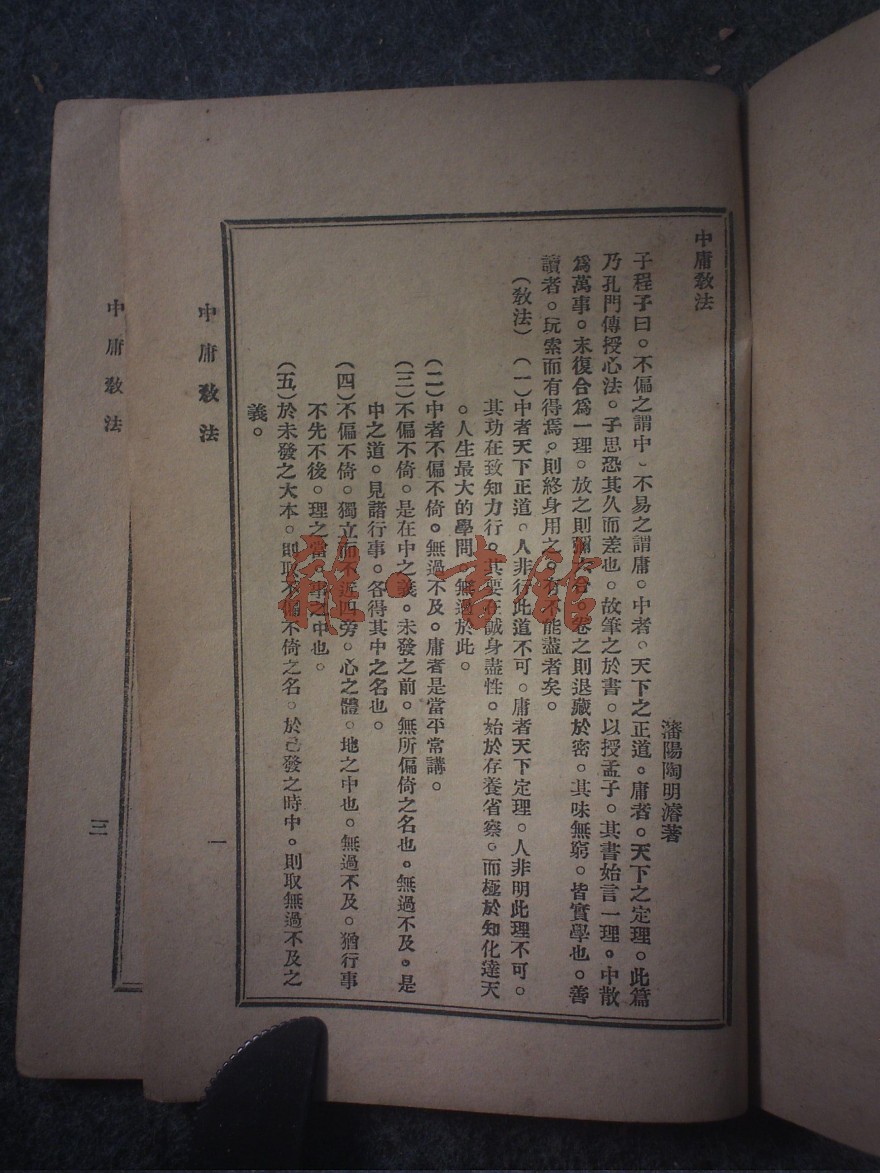 中庸教法
瀋陽陶明濬著
子程子曰。不偏之謂中、不易之謂庸。中者。天下之正道。庸者。天下之定理。此篇
乃孔門傳授心法。子思恐其久而差也。故筆之於書。以授孟子。其書始言一理。中散
爲萬事。末復合爲一理。放之則彌六合。卷之則退藏於密。其味無窮。皆實學也。善
讀者。玩索而有得焉。則終身用之。有不能盡者矣。
(教法)(一)中者天下正道。人非行此道不可。庸者天下定理。人非明此理不可。
其功在致知力行。其要在誠身盡性。始於存養省察。而極於知化達天
。人生最大的學問。無過於此。
(二)中者不偏不倚。無過不及。庸者是當平常講。
(三)不偏不倚。是在中之義。未發之前。無所偏倚之名也。無過不及。是
中之道。見諸行事。各得其中之名也。
(四)不偏不倚。獨立而不近四旁。心之體。地之中也。無過不及。猶行事
不先不後。理之當。事之中也。
(五)於未發之大本。則取不偏不倚之名。於已發之時中。則取無過不及之
義。
中庸教法
一
中庸教法
三
雅·書館